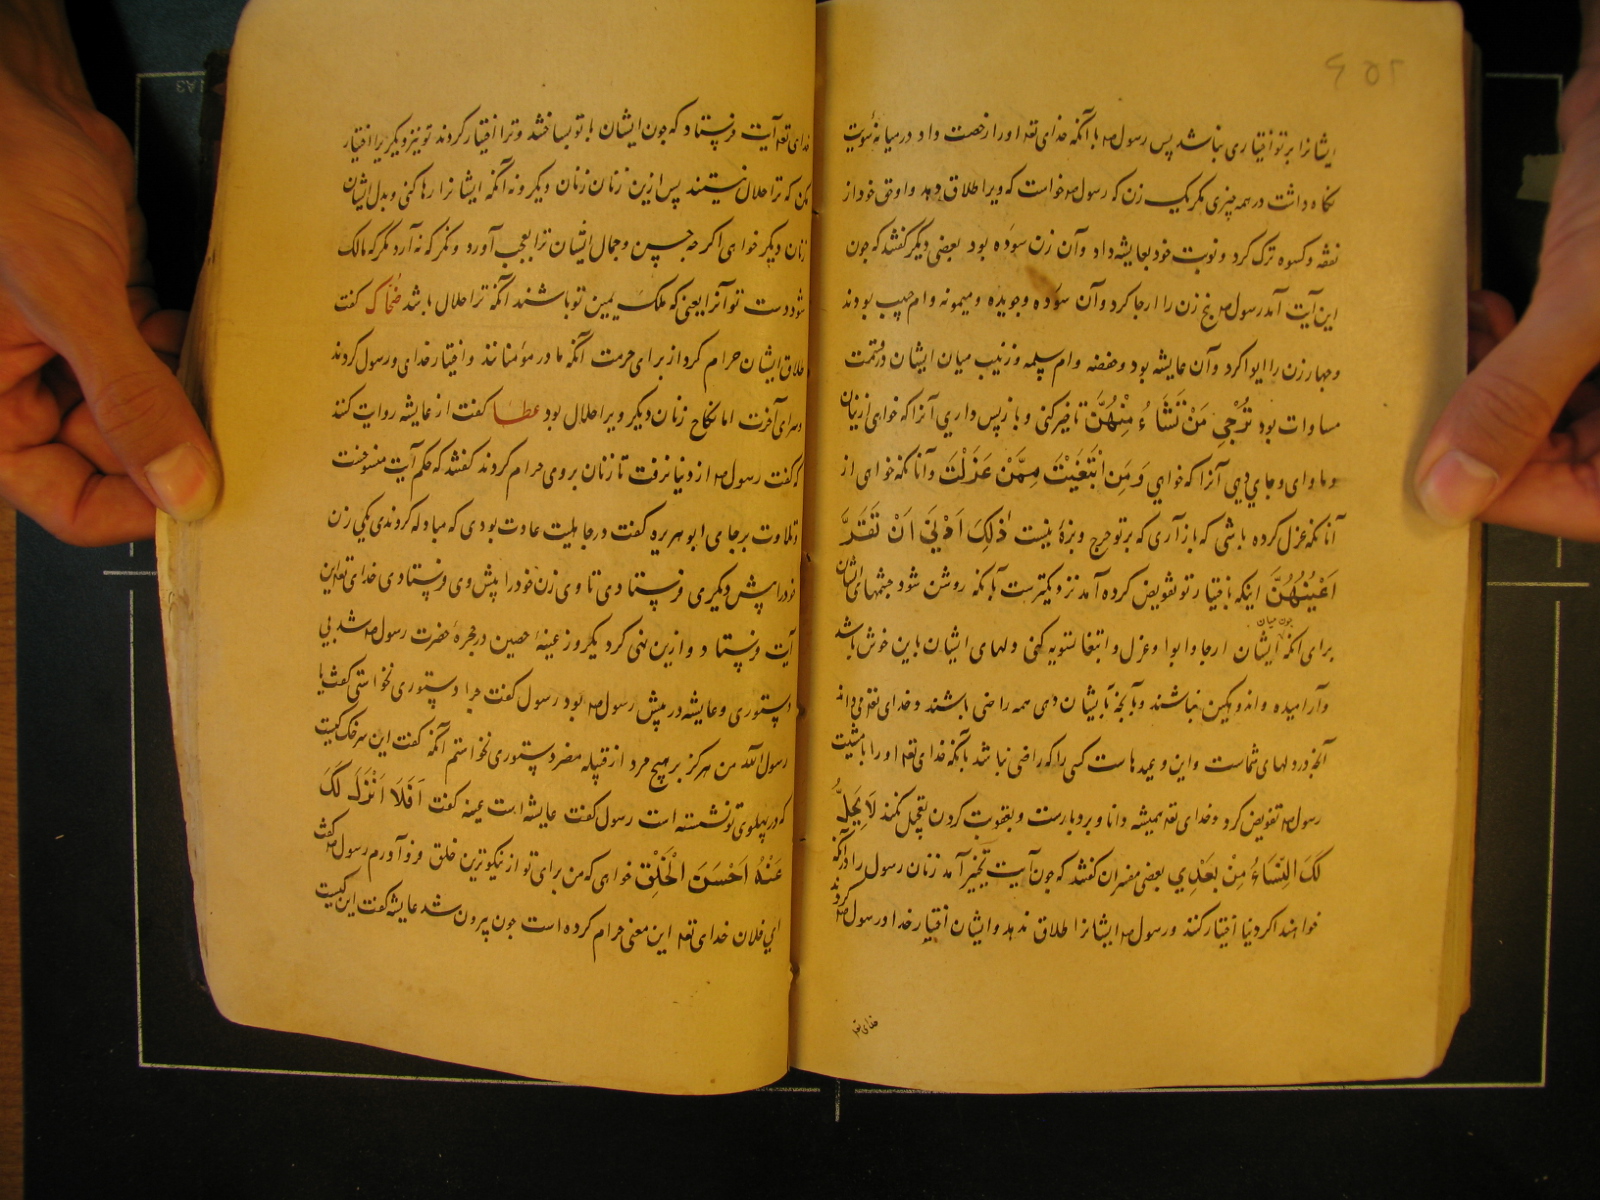 ایشانرا بر تو اختیاری نباشد پس رسول صم با آنکه خدای تعه او را رخصت داد در میانه سویت
نکاه داشت در همه چیزی مکر یک زن که رسول صم خواست که ویرا طلاق دهد و او حق خود از
نفقه و کسوه ترک کرد و نوبت خود بعایشه داد و آن زن سوده بود بعضی دیگر کفتند که چون
این آیت آمد رسول صم پنج زن را ارجا کرد و آن سوده و جویده و میمونه و ام حبیب بودند
و چهار زن را ایوا کرد و آن عایشه بود و حفصه و ام سلمه و زینب میان ایشان در قسمت
مساوات بود تُرْجِي مَنْ تَشَاءُ مِنْهُنَّ تاخیر کنی و باز پس داری آنرا که خواهی از زنان
و ماوای و جای دهی آنرا که خواهی وَمَنِ ابْتَغَيْتَ مِمَّنْ عَزَلْتَ و آنانکه خواهی از
آنانکه عزل کرده باشی که باز آری که بر تو حرج و بزهٔ نیست ذٰلِكَ اَدْنٰى اَنْ تَقَرَّ
اَعْيُنُهُنَّ اینکه باختیار تو تفویض کرده آمد نزدیکترست بآنکه روشن شود چشمهای ایشان
چون میان
برای آنکه ایشان ارجا و ایوا و عزل و ابتغا تسویه کنی و دلهای ایشان باین خوش باشد
و آرامیده و اندوهکین نباشند و بآنچه بایشان دهی همه راضی باشند و خدای تعه می داند
آنچه در دلهای شماست و این وعیدهاست کسی را که راضی نباشد بآنکه خدای تعه او را با مشیت
رسول صم تفویض کرد و خدای تعه همیشه دانا و بردبارست و بعقوبت کردن تعجیل نکند لَا يَحِلُّ
لَكَ النِّسَاءُ مِنْ بَعْدِي بعضی مفسران کفتند که چون آیت تخییر آمد زنان رسول را در آنکه
خواهند اکر دنیا اختیار کنند و رسول صم ایشانرا طلاق ندهد و ایشان اختیار خدا و رسول صم کردند
خدای تعه
خدای تعه آیت فرستاد که چون ایشان با تو بساختند و ترا اختیار کردند تو نیز دیگر یرا اختیار
مکن که ترا حلال نیستند پس ازین زنان زنان دیگر و نه آنکه ایشانرا رها کنی و بدل ایشان
زنان دیگر خواهی اکر چه حسن و جمال ایشان ترا بعجب آورد و مکر که نه آرد مکر که مالک
شود دست تو آنرا یعنی که ملک یمین تو باشند آنکه ترا حلال باشد ضحاک کفت
طلاق ایشان حرام کرد از برای حرمت آنکه مادر مؤمنانند و اختیار خدای و رسول کردند
و سرای آخرت اما نکاح زنان دیگر ویرا حلال بود عطا کفت از عایشه روایت کنند
که کفت رسول صم از دنیا نرفت تا زنان بر وی حرام کردند کفتند که حکم آیت منسوخست
و تلاوت بر جای ابو هریره کفت در جاهلیت عادت بودی که مبادله کردندی یکی زن
خود را پیش دیگری فرستادی تا وی زن خود را پیش وی فرستادی خدای تعه این
آیت فرستاد و ازین نهی کرد یکروز عیینه حصین در حجرهٔ حضرت رسول صم شد بی
دستوری و عایشه در پیش رسول صم بود رسول کفت چرا دستوری نخواستی کفت یا
رسول الله من هرکز بر هیچ مرد از قبیله مضر دستوری نخواستم آنکه کفت این سرخک کیست
که در پهلوی تو نشسته است رسول کفت عایشه است عیینه کفت اَفَلَا اَنْزَلَ لَكَ
عَنْهُ اَحْسَنَ الْخَلْقِ خواهی که من برای تو از نیکوترین خلق فرود آورم رسول صم کفت
ای فلان خدای تعه این معنی حرام کرده است چون بیرون شد عایشه کفت این کیست